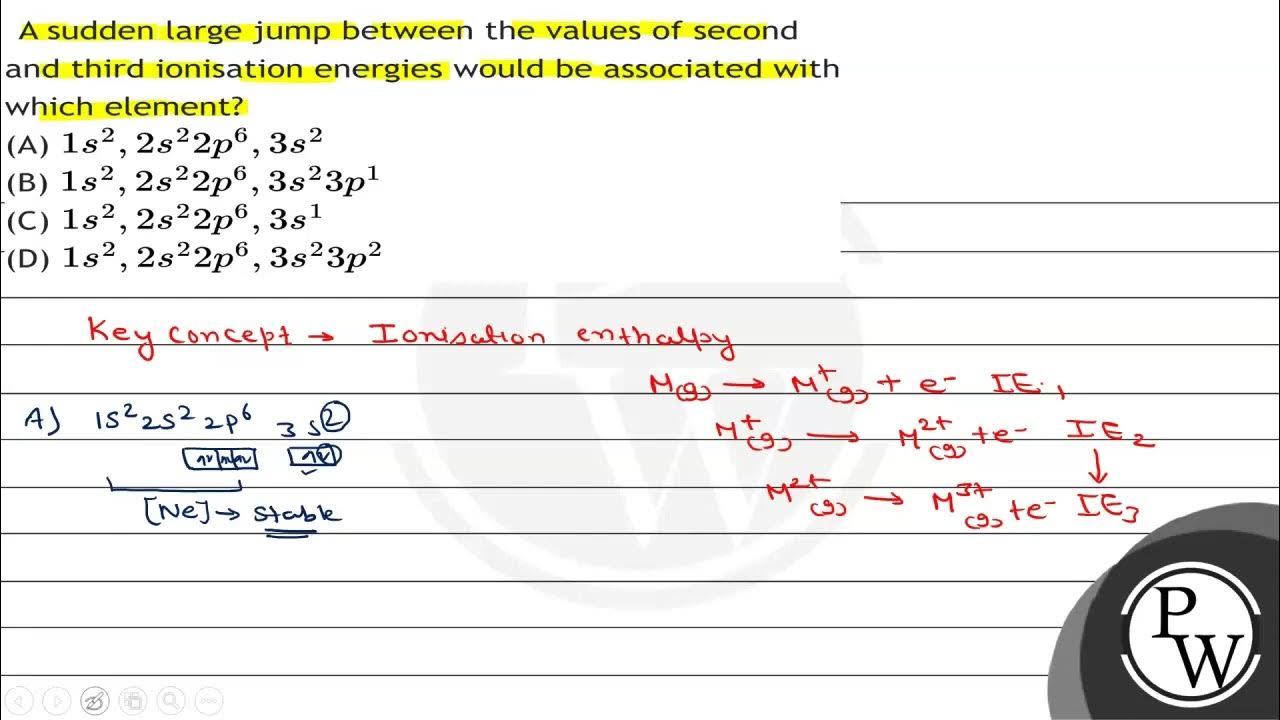 A sudden large jump between the values of second
and third ionisation energies would be associated with
which element?
(A) 1s², 2s²2p⁶, 3s²
(B) 1s², 2s²2p⁶, 3s²3p¹
(C) 1s², 2s²2p⁶, 3s¹
(D) 1s², 2s²2p⁶, 3s²3p²
Key concept → Ionisation enthalpy
M(g) → M⁺(g) + e⁻ IE₁
A) 1s² 2s² 2p⁶ 3s²
M⁺(g) → M²⁺(g) + e⁻ IE₂
[Ne] → stable
M²⁺(g) → M³⁺(g) + e⁻ IE₃
PW